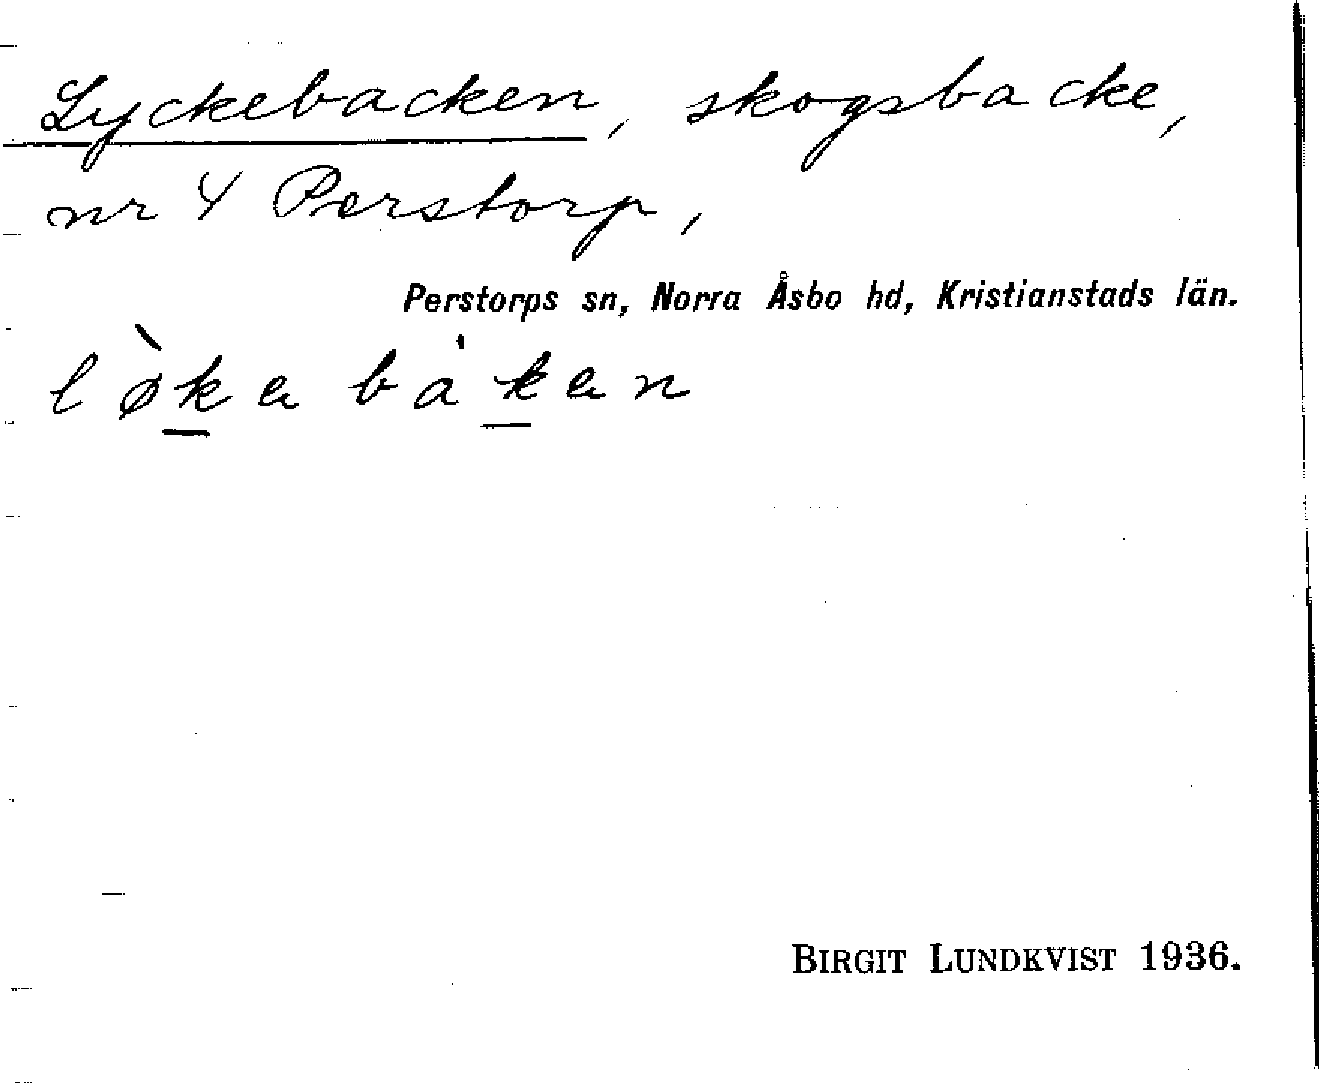 Lyckebacken, skogsbacke,
nr 4 Perstorp,
Perstorps sn, Norra Åsbo hd, Kristianstads län.
lø̀ḵa bàḵan
BIRGIT LUNDKVIST 1936.